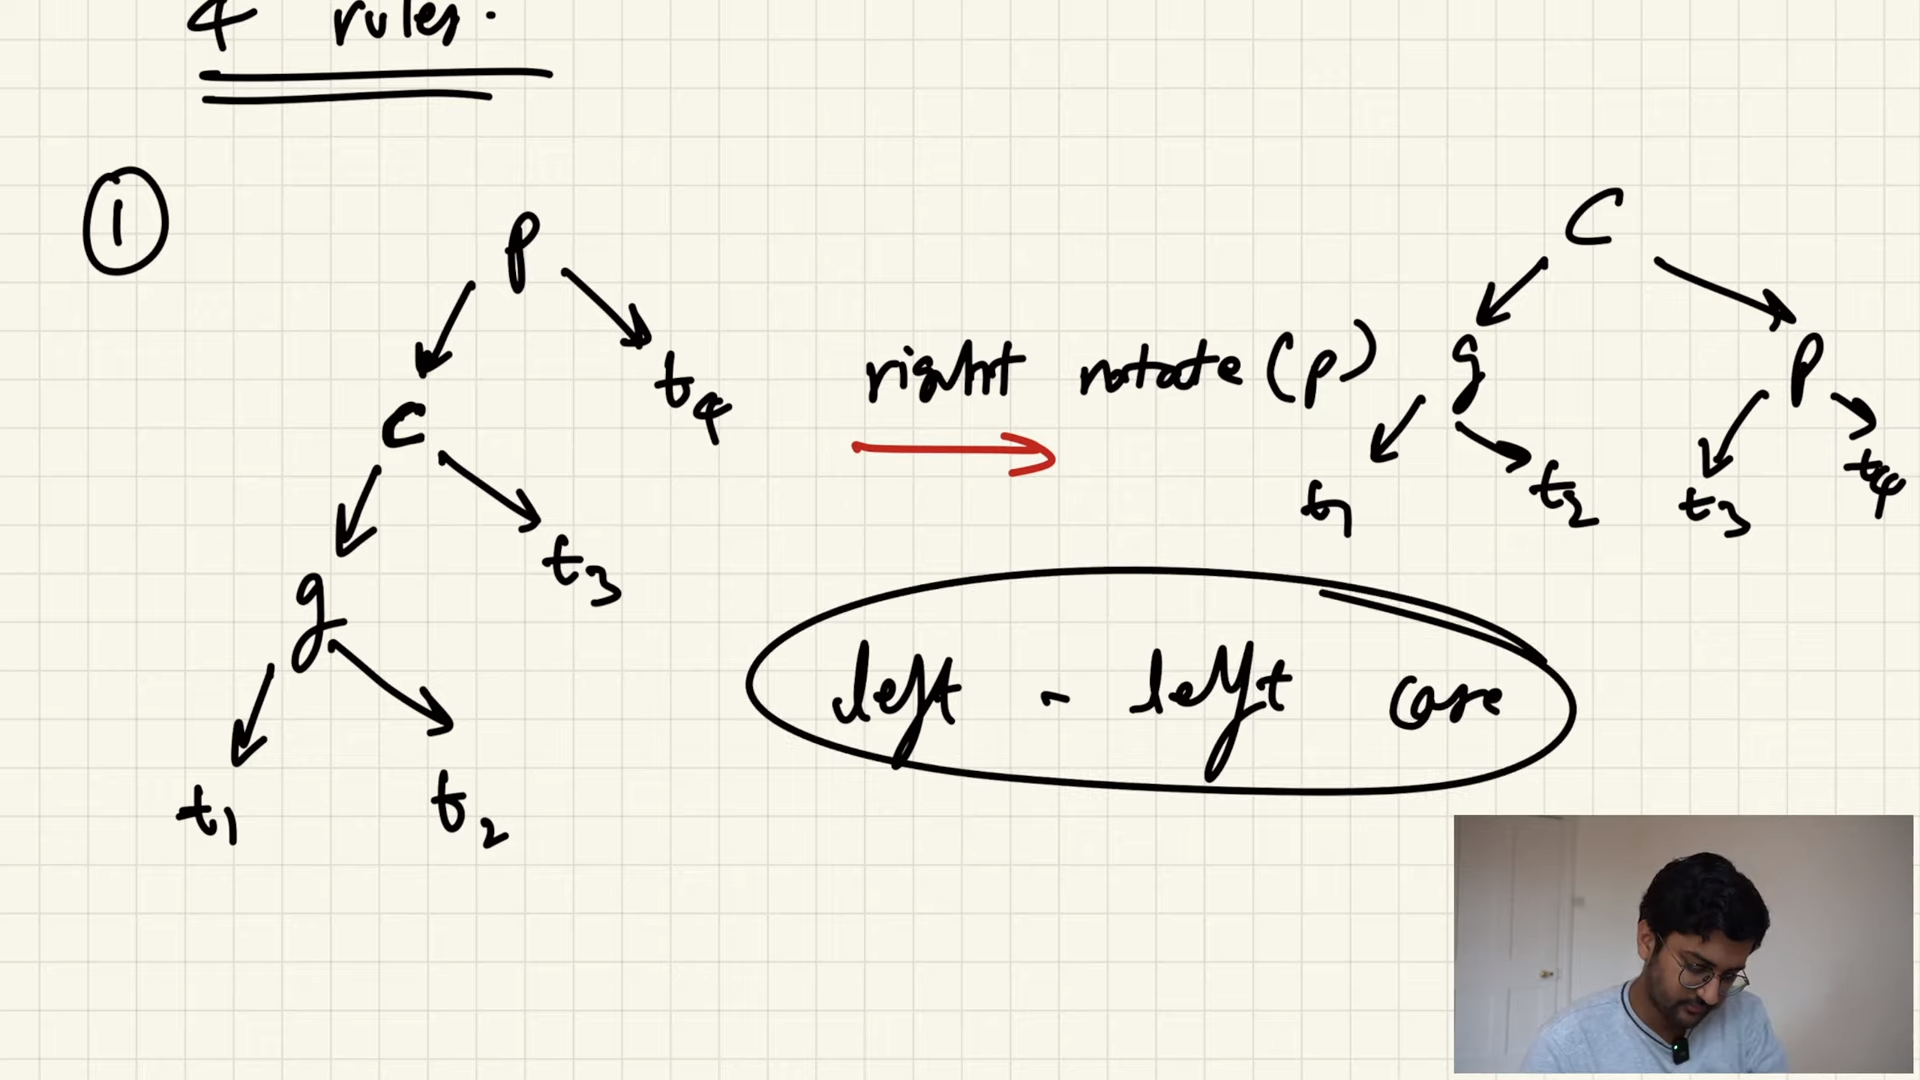 4 rules.
1
p
c
t4
g
t3
t1
t2
right rotate (p)
C
g
p
t1
t2
t3
t4
left - left case